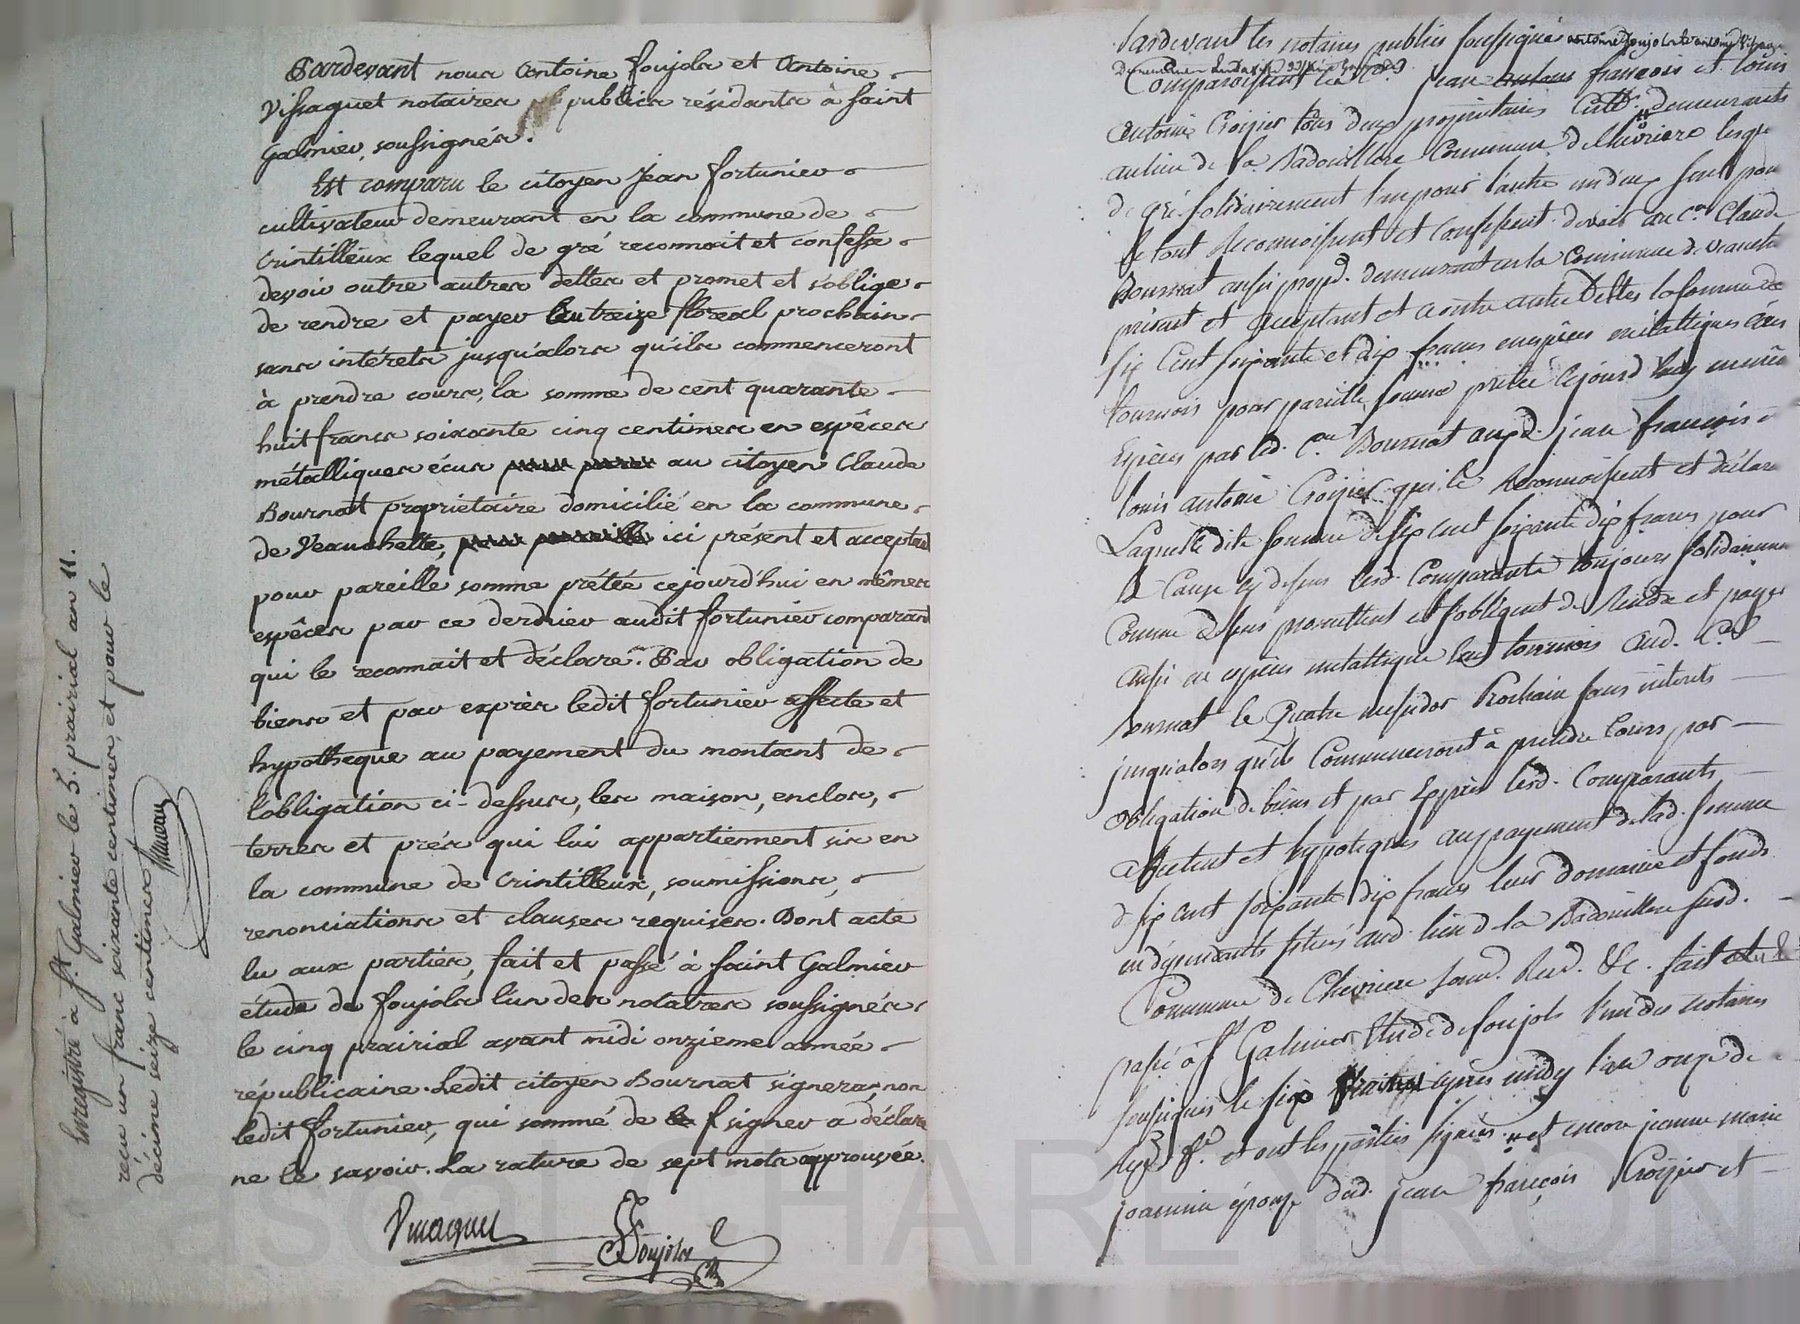 Pardevant nous Antoine foujols et Antoine
Vissaguet notaires publics résidants à saint
Galmier, soussignés.
Est comparu le citoyen Jean fortunier
cultivateur demeurant en la commune de
Crintilleux lequel de gré reconnoit et confesse
devoir outre autres dettes et promet et s'oblige
de rendre et payer le treize floreal prochain
sans intérets jusqu'alors qu'ils commenceront
à prendre cours, la somme de cent quarante
huit francs soixante cinq centimes en espèces
métalliques écus au citoyen Claude
Bournat propriétaire domicilié en la commune
de Veauchette, ici présent et acceptant
pour pareille somme prétée cejourd'hui en mêmes
espèces par ce derdrier audit fortunier comparant
qui le reconnait et déclare. Par obligation de
biens et par exprès ledit fortunier affecte et
hypotheque au payement du montant de
l'obligation ci-dessus, les maison, enclos,
terres et prés qui lui appartiennent sis en
la commune de Crintilleux, soumissions,
renonciations et clauses requises. Dont acte
lu aux parties, fait et passé à saint Galmier
étude de foujols l'un des notaires soussignés
le cinq prairial avant midi onzieme année
républicaine. Ledit citoyen Bournat signera, non
ledit fortunier, qui sommé de signer a déclaré
ne le savoir. La rature de sept mots approuvée.
foujols
Enregistré à St. Galmier le 5. prairial an 11.
reçu un franc soixante centimes, et pour le
décime seize centimes
Pardevant les notaires publics soussignés antoine foujols et antoine
Comparoissent les jean françois et louis
antoine Croizier tous deux propriétaires demeurants
au lieu de la Badouillere Commune de Chevriere lesquels
de gré solidairement l'un pour l'autre un d'eux seul pour
le tout Reconnoissent et Confessent devoir au Cen. Claude
Bournat aussi propd. demeurant en la Commune de Veauchette
présent et acceptant et a outre autre Dettes la somme de
six Cent soixante et dix francs en espèces métalliques écus
tournois pour pareille somme prétée cejourd'huy en même
Espèces par led. Cen. Bournat auxd. jean françois
louis antoine Croizier qui le Reconnoissent et déclare
Laquelle dite somme de six cent soixante dix francs pour
la Cause cy dessus lesd. Comparants toujours solidairement
Comme dessus promettent et s'obligent de Rendre et payer
aussi en espèces métallique écus tournois aud. Cen.
Bournat le Quatre messidor Prochain sans intérets
jusqu'alors qu'ils Commenceront à prendre Cours par
obligation de biens et par Exprès lesd. Comparants
affectent et hypotequés au payement de lad. somme
de six cent soixante dix francs leur domaine et fonds
en dépendants situés aud. lieu de la Badouillere susd.
Commune de Chevriere soum. Rend. &c. fait
passé à St Galmier, Etude de foujols l'un des notaires
soussignés le six Prairial après midy l'an onze de
et ont les parties signés et encore jeanne marie
jeannin épouse dud. jean françois Croizier et
Pascal CHAREYRON